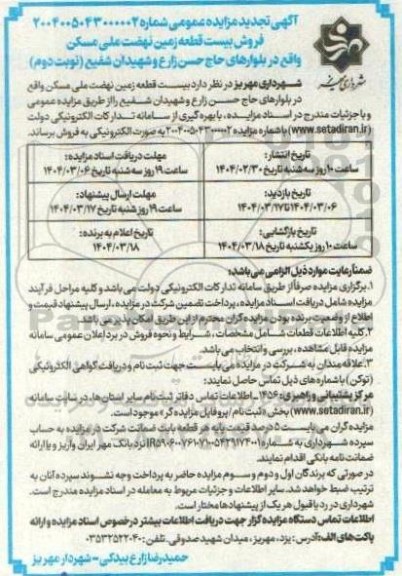 آگهی تجدید مزایده عمومی شماره ۲۰۰۴۰۰۵۰۴۳۰۰۰۰۰۲
فروش بیست قطعه زمین نهضت ملی مسکن
واقع در بلوارهای حاج حسن زارع و شهیدان شفیع (نوبت دوم)
شهرداری مهریز
شهرداری مهریز در نظر دارد بیست قطعه زمین نهضت ملی مسکن واقع
در بلوارهای حاج حسن زارع و شهیدان شفیع را از طریق مزایده عمومی
و با جزئیات مندرج در اسناد مزایده، با بهره گیری از سامانه تدارکات الکترونیکی دولت
(www.setadiran.ir) با شماره مزایده ۲۰۰۴۰۰۵۰۴۳۰۰۰۰۰۲ به صورت الکترونیکی به فروش برساند.
تاریخ انتشار:
ساعت ۱۰ روز سه شنبه تاریخ ۱۴۰۴/۰۲/۳۰
مهلت دریافت اسناد مزایده:
ساعت ۱۹ روز سه شنبه تاریخ ۱۴۰۴/۰۳/۰۶
تاریخ بازدید:
۱۴۰۴/۰۳/۰۶ تا ۱۴۰۴/۰۳/۱۷
مهلت ارسال پیشنهاد:
ساعت ۱۹ روز شنبه تاریخ ۱۴۰۴/۰۳/۱۷
تاریخ بازگشایی:
ساعت ۱۰ روز یکشنبه تاریخ ۱۴۰۴/۰۳/۱۸
تاریخ اعلام به برنده:
۱۴۰۴/۰۳/۱۸
ضمناً رعایت موارد ذیل الزامی می باشد:
۱. برگزاری مزایده صرفاً از طریق سامانه تدارکات الکترونیکی دولت می باشد و کلیه مراحل فرآیند
مزایده شامل دریافت اسناد مزایده، پرداخت تضمین شرکت در مزایده، ارسال پیشنهاد قیمت و
اطلاع از وضعیت برنده بودن مزایده گران محترم از این طریق امکان پذیر می باشد.
۲. کلیه اطلاعات قطعات شامل مشخصات، شرایط و نحوه فروش در برد اعلان عمومی سامانه
مزایده قابل مشاهده، بررسی و انتخاب می باشد.
۳. علاقه مندان به شرکت در مزایده می بایست جهت ثبت نام و دریافت گواهی الکترونیکی
(توکن) با شماره های ذیل تماس حاصل نمایند:
مرکز پشتیبانی و راهبری: ۱۴۵۶ ـ اطلاعات تماس دفاتر ثبت نام سایر استان ها، در سایت سامانه
(www.setadiran.ir) بخش «ثبت نام / پروفایل مزایده گر» موجود است.
مزایده گران می بایست ۵ درصد قیمت پایه هر قطعه بابت ضمانت شرکت در مزایده به حساب
سپرده شهرداری به شماره نزد بانک مهر ایران واریز و یا ارائه
ضمانت نامه بانکی اقدام نمایند.
در صورتی که برندگان اول و دوم و سوم مزایده حاضر به پرداخت وجه نشوند سپرده آنان به
ترتیب ضبط خواهد شد. سایر اطلاعات و جزئیات مربوط به معامله در اسناد مزایده مندرج است.
شهرداری در رد یا قبول هر یک از پیشنهادها مختار است.
اطلاعات تماس دستگاه مزایده گزار جهت دریافت اطلاعات بیشتر در خصوص اسناد مزایده و ارائه
پاکت های الف: آدرس: یزد، مهریز، میدان شهید صدوقی. تلفن: ۰۳۵۳۲۵۲۲۰۴۰
حمیدرضا زارع بیدکی - شهردار مهریز